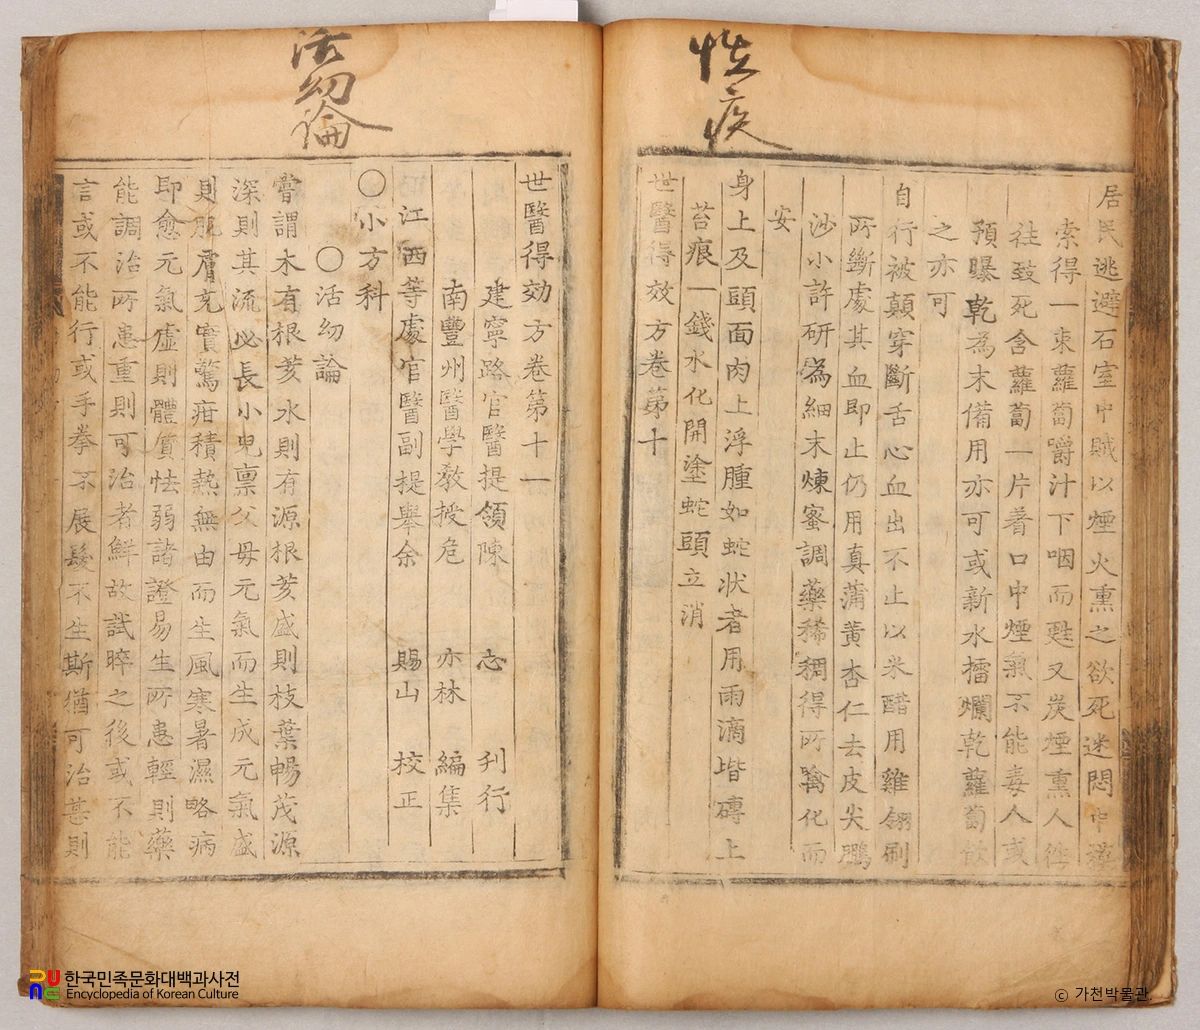 怪疾
居民逃避石室中賊以煙火熏之欲死迷悶中
索得一束蘿蔔嚼汁下咽而甦又炭煙熏人往
往致死含蘿蔔一片着口中煙氣不能毒人或
預曝乾為末備用亦可或新水擂爛乾蘿蔔飮
之亦可
自行被顛穿斷舌心血出不止以米醋用雞翎刷
所斷處其血即止仍用真蒲黃杏仁去皮尖鵬
沙小許研為細末煉蜜調藥稀稠得所噙化而
安
身上及頭面肉上浮腫如蛇状者用雨滴堦磚上
苔痕一錢水化開塗蛇頭立消
世醫得效方卷第十
活幼論
世醫得効方卷第十一
建寧路官醫提領陳 志 刋行
南豐州醫學敎授危 亦林 編集
江西等處官醫副提舉余 賜山 校正
○小方科
○活幼論
嘗謂木有根荄水則有源根荄盛則枝葉暢茂源
深則其流必長小兒禀父母元氣而生成元氣盛
則肌膚充實驚疳積熱無由而生風寒暑濕略病
即愈元氣虛則體質怯弱諸證易生所患輕則藥
能調治所患重則可治者鮮故試晬之後或不能
言或不能行或手拳不展髮不生斯猶可治甚則
한국민족문화대백과사전
Encyclopedia of Korean Culture
ⓒ 가천박물관